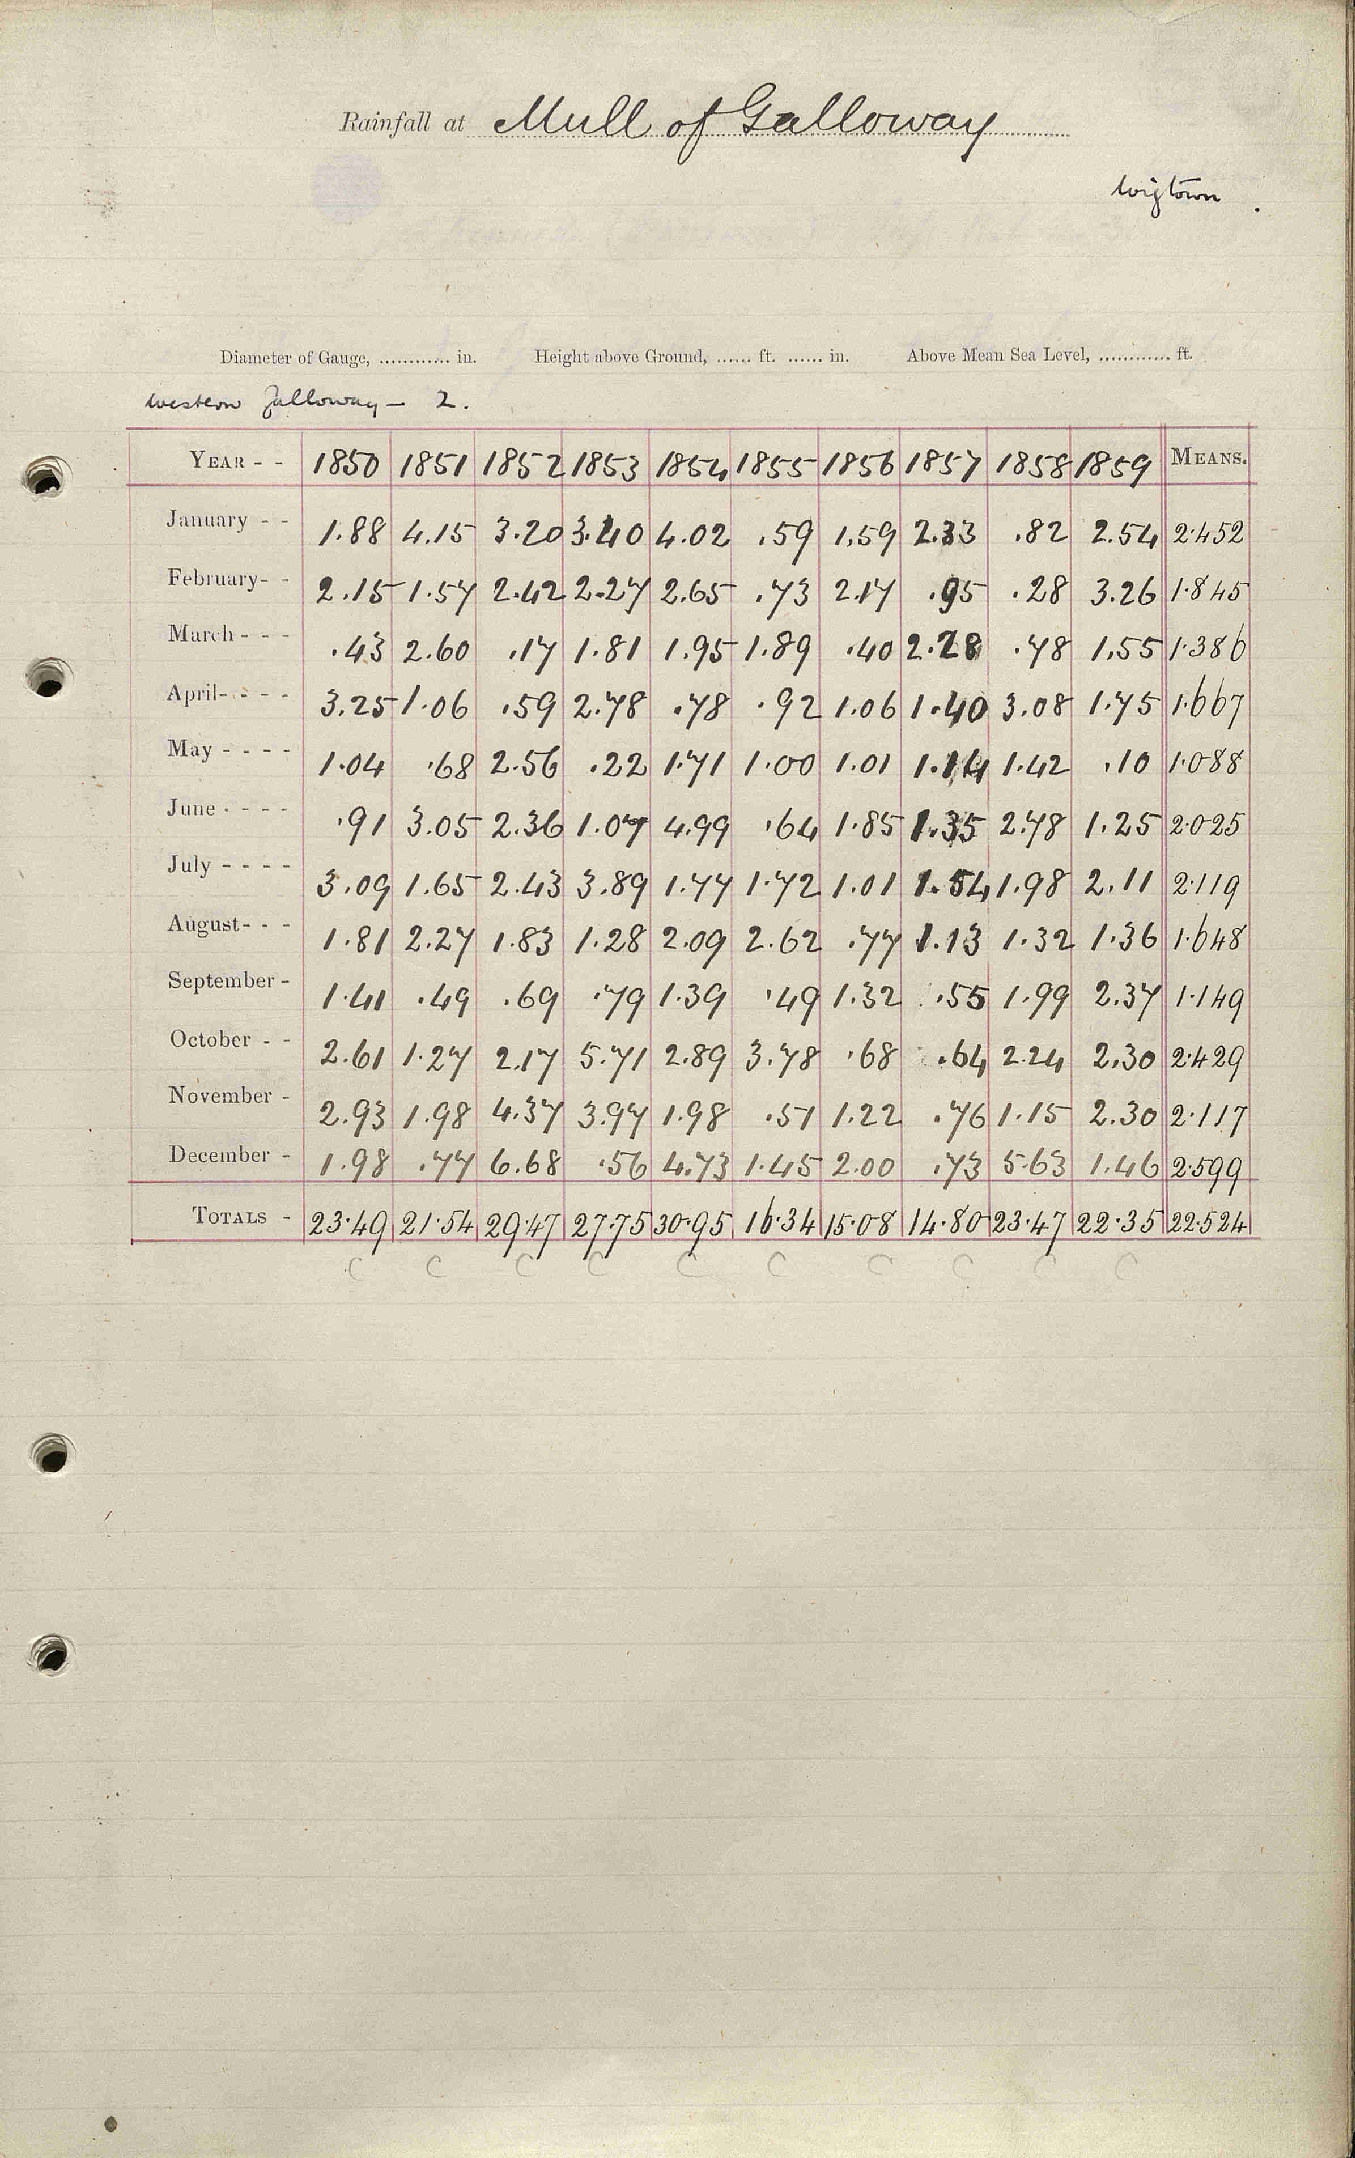 Rainfall at Mull of Galloway
Wigtown.
Diameter of Gauge, ............ in. Height above Ground, ...... ft. ...... in. Above Mean Sea Level, ............ ft.
Western Galloway — 2.
YEAR - - 1850 1851 1852 1853 1854 1855 1856 1857 1858 1859 MEANS.
January - - 1.88 4.15 3.20 3.40 4.02 .59 1.59 2.33 .82 2.54 2.452
February- - 2.15 1.57 2.42 2.27 2.65 .73 2.17 .95 .28 3.26 1.845
March - - - .43 2.60 .17 1.81 1.95 1.89 .40 2.28 .78 1.55 1.386
April- - - - 3.25 1.06 .59 2.78 .78 .92 1.06 1.40 3.08 1.75 1.667
May - - - - 1.04 .68 2.56 .22 1.71 1.00 1.01 1.14 1.42 .10 1.088
June - - - - .91 3.05 2.36 1.07 4.99 .64 1.85 1.35 2.78 1.25 2.025
July - - - - 3.09 1.65 2.43 3.89 1.77 1.72 1.01 1.54 1.98 2.11 2.119
August- - - 1.81 2.27 1.83 1.28 2.09 2.62 .77 1.13 1.32 1.36 1.648
September - 1.41 .49 .69 .79 1.39 .49 1.32 .55 1.99 2.37 1.149
October - - 2.61 1.27 2.17 5.71 2.89 3.78 .68 .64 2.24 2.30 2.429
November - 2.93 1.98 4.37 3.97 1.98 .51 1.22 .76 1.15 2.30 2.117
December - 1.98 .77 6.68 .56 4.73 1.45 2.00 .73 5.63 1.46 2.599
TOTALS - 23.49 21.54 29.47 27.75 30.95 16.34 15.08 14.80 23.47 22.35 22.524
C C C C C C C C C C